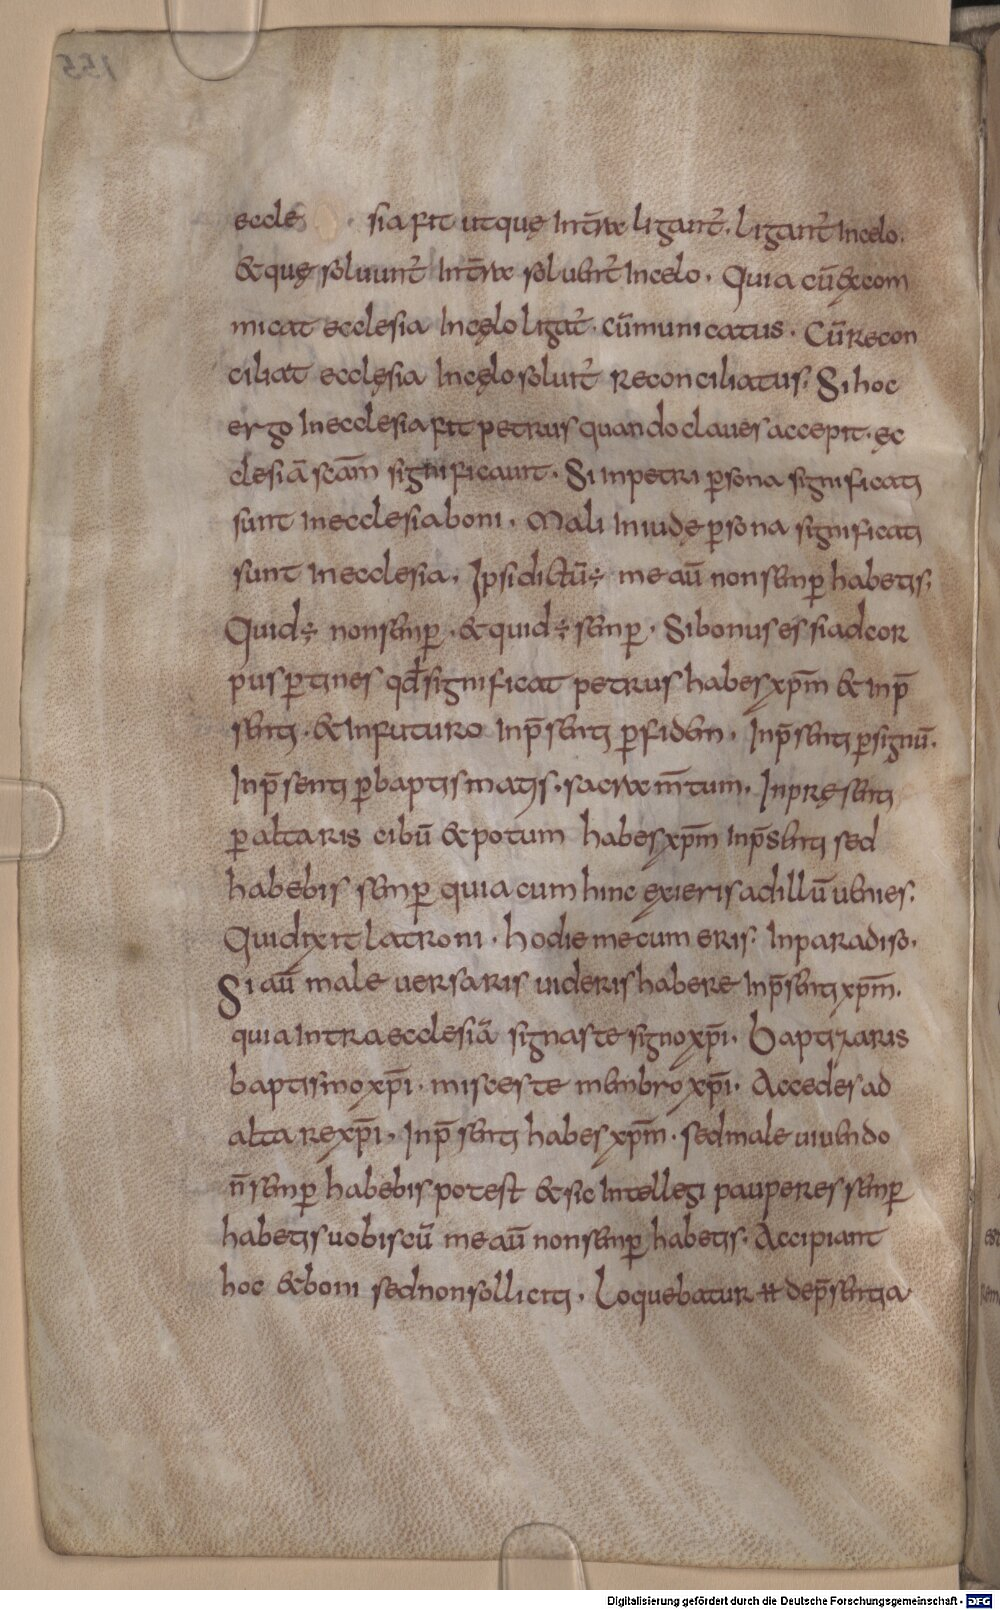 155
eccle sia fit ut quę In tr̄a liganť. Liganť In celo.
& quę soluunť In tr̄a soluenť In celo. Quia cū excom
micat ecclesia In cęlo ligať. cūmunicatus. Cū recon
ciliat ecclęsia In cęlo soluiť reconciliatus. Si hoc
ergo In ecclesia fit petrus quando claues accepit. ęc
clesiā scām significauit. Si in petri ꝑsona significati
sunt in ecclesia boni. Mali In iudę ꝑsona significati
sunt in ecclesia. Ipsi dictū ÷ me aū non semꝑ habetis.
Quid ÷ non semꝑ. & quid ÷ semꝑ. Si bonus es si ad cor
pus ꝑtines qđ significat petrus habes xp̄m & in p̄
senti. & In futuro In p̄senti ꝑ fidem. In p̄senti ꝑ signū.
In p̄senti ꝑ baptismatis. sacram̄tum. In pręsenti
ꝑ altaris cibū & potum habes xp̄m In p̄senti sed
habebis semꝑ quia cum hinc exieris ad illū uenies.
Qui dixit latroni. hodie mecum eris. In paradiso.
Si aū male uersaris uideris habere In p̄senti xp̄m.
quia Intra ecclesiā signas te signo xp̄i. Baptizaris
baptismo xp̄i. misces te membro xp̄i. Accedes ad
altare xp̄i. In p̄senti habes xp̄m. sed male uiuendo
n̄ semꝑ habebis potest & sic Intellegi pauperes semꝑ
habetis uobiscū me aū non semꝑ habetis. Accipiant
hoc & boni sed non solliciti. Loquebatur ħ de p̄sentia
Digitalisierung gefördert durch die Deutsche Forschungsgemeinschaft - DFG